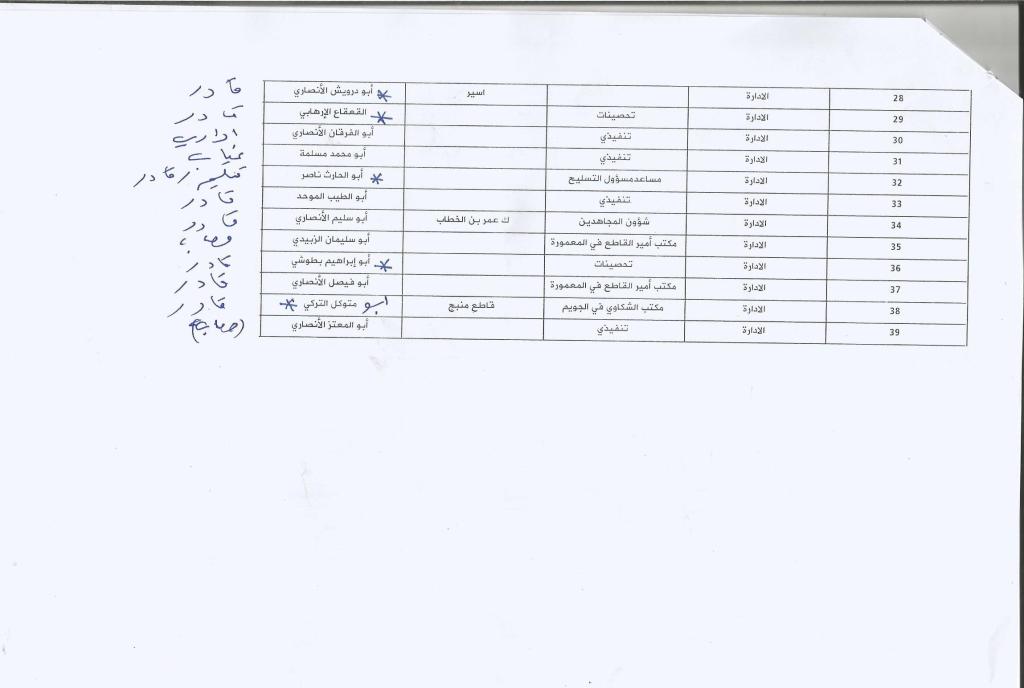 28 الادارة اسير أبو درويش الأنصاري * قادر
29 الادارة تحصينات القعقاع الإرهابي * قادر
30 الادارة تنفيذي أبو الفرقان الأنصاري اداري
31 الادارة تنفيذي أبو محمد مسلمة غياب
32 الادارة مساعدمسؤول التسليح أبو الحارث ناصر * قادر
33 الادارة تنفيذي أبو الطيب الموحد قادر
34 الادارة شؤون المجاهدين ك عمر بن الخطاب أبو سليم الأنصاري قادر
35 الادارة مكتب أمير القاطع في المعمورة أبو سليمان الزبيدي
36 الادارة تحصينات أبو إبراهيم بطوشي * قادر
37 الادارة مكتب أمير القاطع في المعمورة أبو فيصل الأنصاري قادر
38 الادارة مكتب الشكاوي في الجويم قاطع منبج ابو متوكل التركي * قادر
39 الادارة تنفيذي أبو المعتز الأنصاري